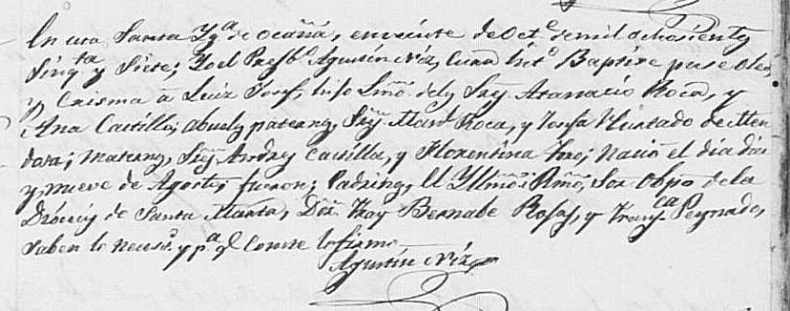 En esta Santa Yg.ª de Ocaña, en veinte de Oct.e de mil ochosientos
sinq.ta y siete; Yo el Presb.o Agustin Niz, Cura Int.o Baptise puse Oleo
y Crisma à Luiz Josef, hijo Lmō. de los Sres Atanacio Roca, y
Ana Castilla; abuelos paternos, Sres Man.l Roca, y Josefa Hurtado de Men
dosa; maternos, Sres Andres Castilla, y Florentina Toro; Nacio el dia dies
y nueve de Agosto, fueron; Padrinos, El Yllmō. Rmō. Sor Obpo de la
Diocesis de Santa Marta, Dor. Fray Bernabe Rojas, y Fran.ca Peynado,
saben lo neces.o y p.a q.e Conste lo firmo
Agustin Niz